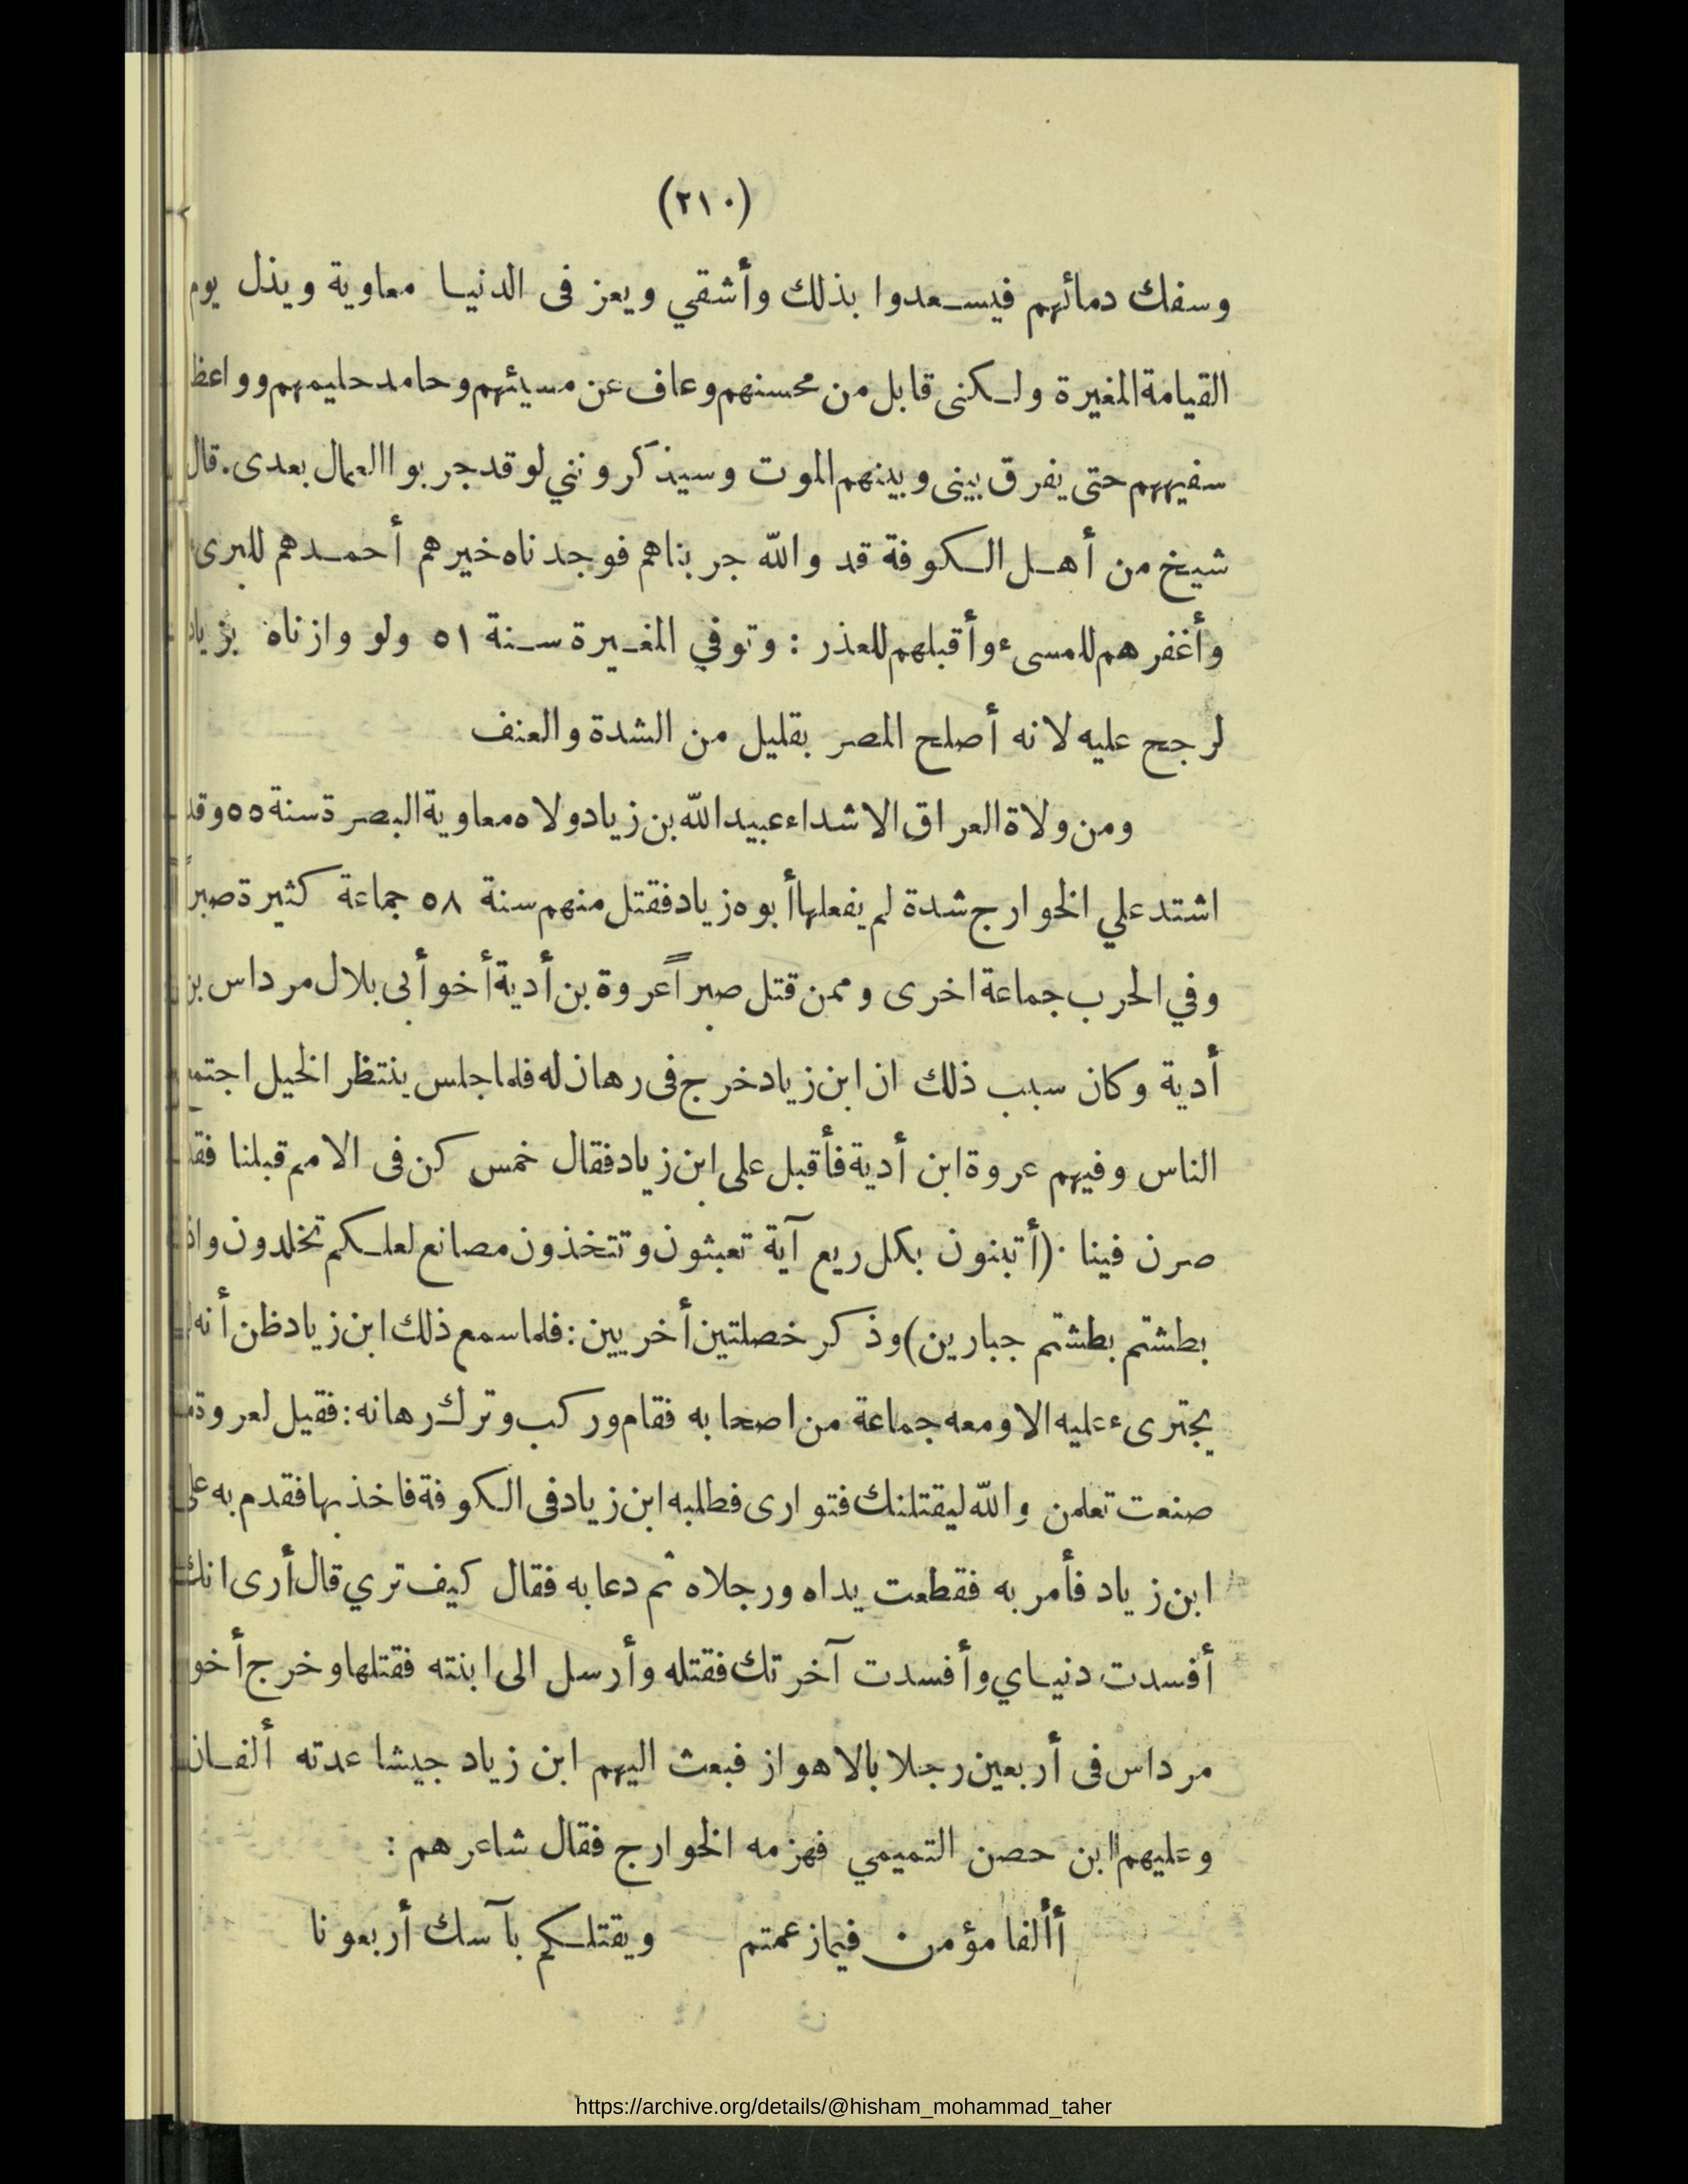 (٢١٠)
وسفك دمائهم فيسعدوا بذلك وأشقي ويعز فى الدنيا معاوية ويذل يوم
القيامة المغيرة ولكنى قابل من محسنهم وعاف عن مسيئهم وحامد حليمهم وواعظ
سفيههم حتى يفرق بينى وبينهم الموت وسيذكرونني لو قد جربوا العمال بعدى. قال
شيخ من أهل الكوفة قد والله جربناهم فوجدناه خيرهم أحمدهم للبرىء
وأغفرهم للمسىء وأقبلهم للعذر : وتوفي المغيرة سنة ٥١ ولو وازناه بزياد
لرجح عليه لانه أصلح المصر بقليل من الشدة والعنف
ومن ولاة العراق الاشداء عبيد الله بن زياد ولاه معاوية البصرة سنة ٥٥ وقد
اشتد علي الخوارج شدة لم يفعلها أبوه زياد فقتل منهم سنة ٥٨ جماعة كثيرة صبراً
وفي الحرب جماعة اخرى وممن قتل صبراً عروة بن أدية أخو أبى بلال مرداس بن
أدية وكان سبب ذلك ان ابن زياد خرج فى رهان له فلما جلس ينتظر الخيل اجتمع
الناس وفيهم عروة ابن أدية فأقبل على ابن زياد فقال خمس كن فى الامم قبلنا فقد
صرن فينا (أتبنون بكل ريع آية تعبثون وتتخذون مصانع لعلكم تخلدون واذا
بطشتم بطشتم جبارين) وذكر خصلتين أخريين : فلما سمع ذلك ابن زياد ظن أنه
يجترىء عليه الا ومعه جماعة من اصحابه فقام وركب وترك رهانه : فقيل لعروة
صنعت تعلمن والله ليقتلنك فتوارى فطلبه ابن زياد فى الكوفة فاخذ بها فقدم به على
ابن زياد فأمر به فقطعت يداه ورجلاه ثم دعا به فقال كيف تري قال أرى انك
أفسدت دنياي وأفسدت آخرتك فقتله وأرسل الى ابنته فقتلها وخرج أخو
مرداس فى أربعين رجلا بالاهواز فبعث اليهم ابن زياد جيشا عدته ألفان
وعليهم ابن حصن التميمي فهزمه الخوارج فقال شاعرهم :
أألفا مؤمن فيما زعمتم ويقتلكم بآسك أربعونا
https://archive.org/details/@hisham_mohammad_taher